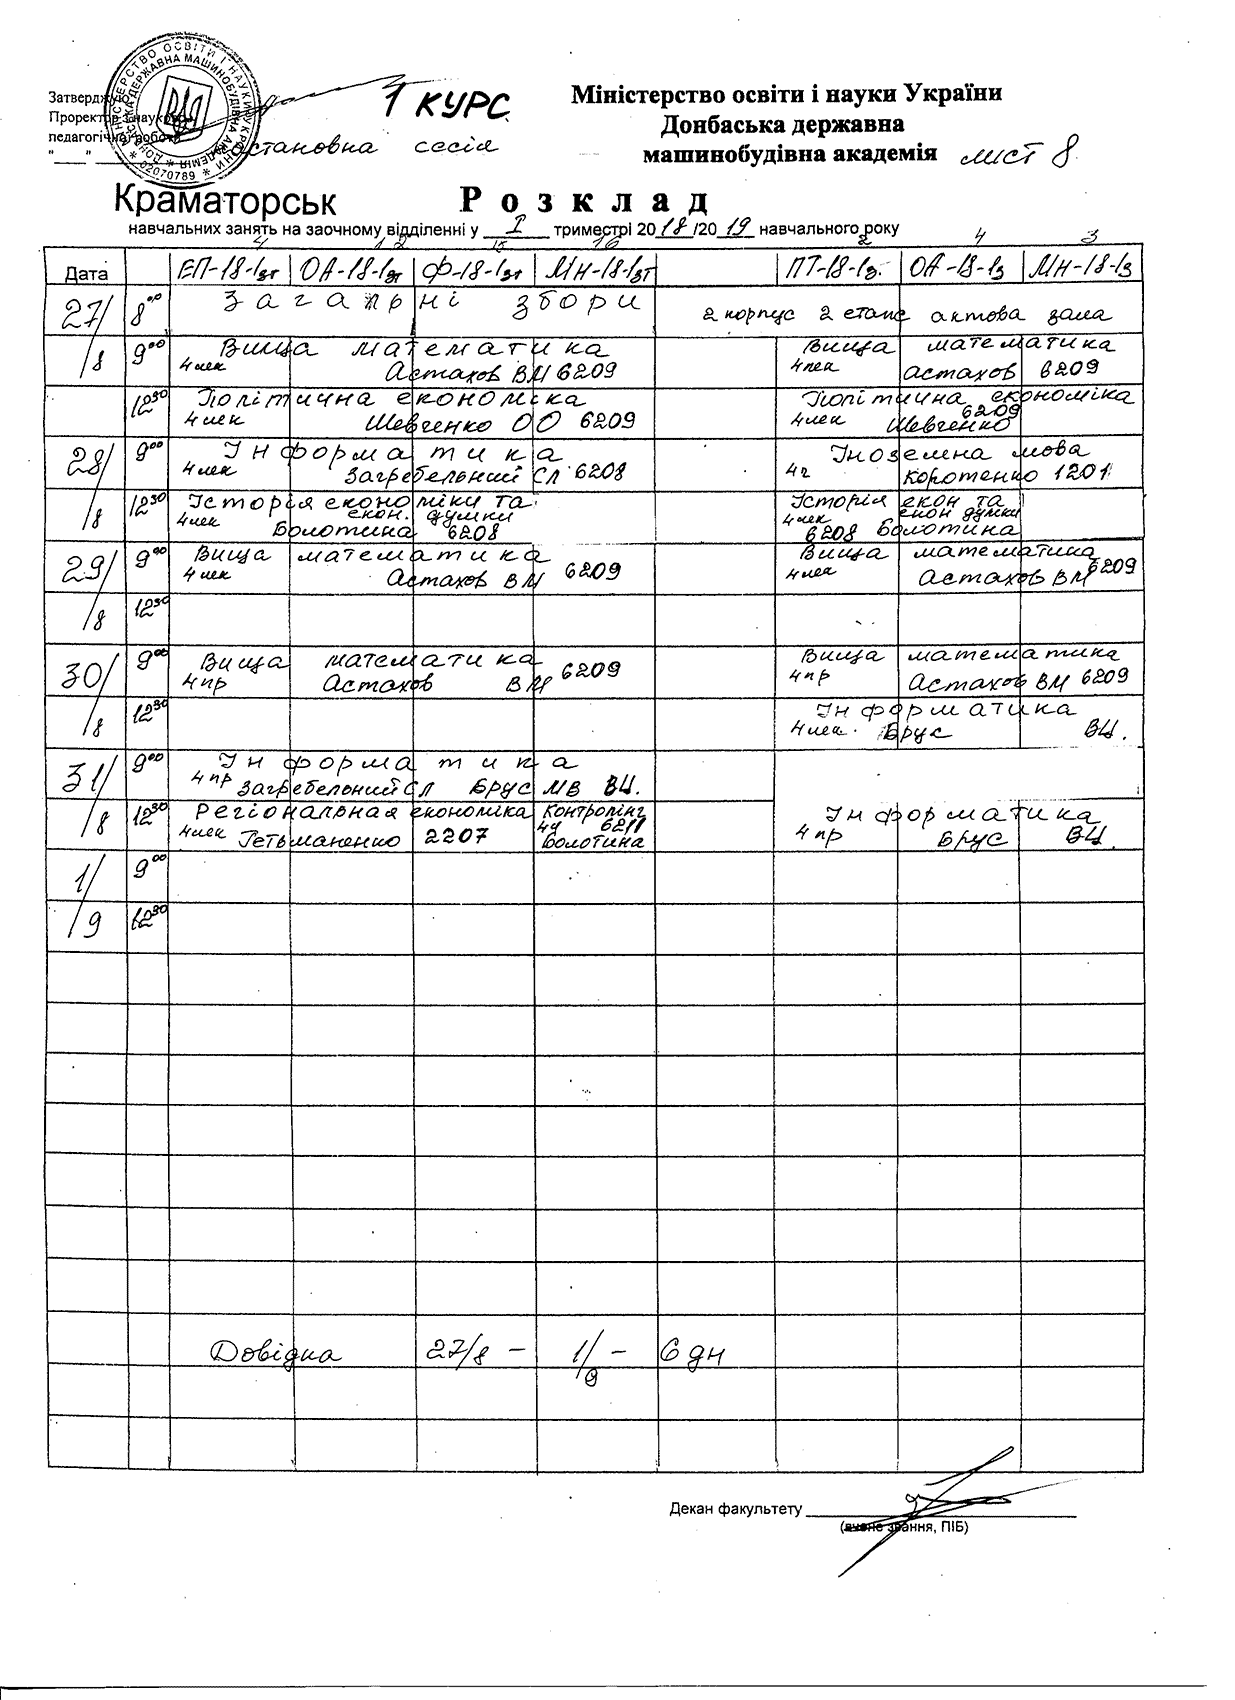 Затверджую
Проректор з науково-
педагогічної роботи
МІНІСТЕРСТВО ОСВІТИ І НАУКИ УКРАЇНИ
ДОНБАСЬКА ДЕРЖАВНА МАШИНОБУДІВНА АКАДЕМІЯ
02070789
1 КУРС
Установна сесія
Міністерство освіти і науки України
Донбаська державна
машинобудівна академія
лист 8
Краматорськ
Розклад
навчальних занять на заочному відділенні у I триместрі 2018/2019 навчального року
4 12 15 16 2 4 3
Дата ЕП-18-1зт ОА-18-1зт Ф-18-1зт МН-18-1зт ПТ-18-1з. ОА-18-1з МН-18-1з
27/8 8⁰⁰ Загальні збори 2 корпус 2 етаж актова зала
9⁰⁰ Вища математика Вища математика
4 лек Астахов ВМ 6209 4 лек Астахов 6209
12³⁰ Політична економіка Політична економіка
4 лек Шевченко ОО 6209 4 лек Шевченко 6209
28/8 9⁰⁰ Інформатика Іноземна мова
4 лек Загребельний СЛ 6208 4г Коротенко 1201
12³⁰ Історія економіки та Історія екон та
4 лек екон. думки 4 лек екон думки
Болотина 6208 6208 Болотина
29/8 9⁰⁰ Вища математика Вища математика
4 лек Астахов ВМ 6209 4 лек Астахов ВМ 6209
12³⁰
30/8 9⁰⁰ Вища математика 6209 Вища математика
4 пр Астахов ВМ 4 пр Астахов ВМ 6209
12³⁰ Інформатика
4 лек. Брус ВЦ.
31/8 9⁰⁰ Інформатика
4 пр Загребельний СЛ Брус МВ ВЦ.
12³⁰ Регіональная економіка Контролінг Інформатика
4 лек Гетьманенко 2207 4ч 6211 4 пр Брус ВЦ.
Болотина
1/9 9⁰⁰
12³⁰
Довідка 27/8 - 1/9 - 6 дн
Декан факультету
(вчене звання, ПІБ)